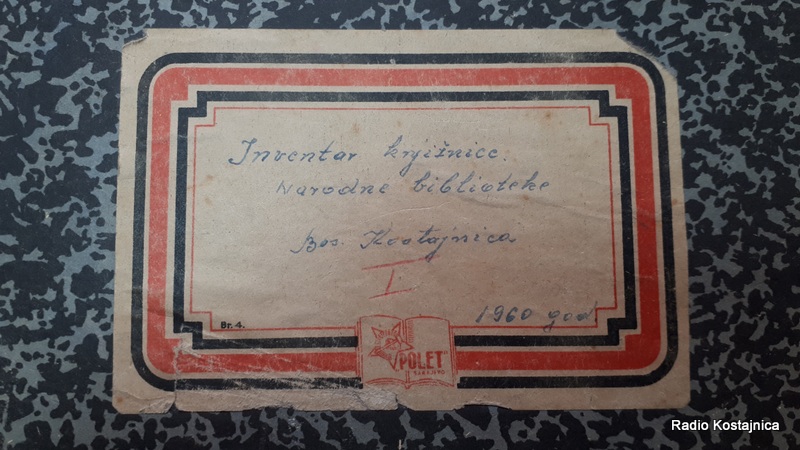 Inventar knjižnice
Narodne biblioteke
Bos. Kostajnica
I.
1960 god
Br. 4.
POLET
SARAJEVO
Radio Kostajnica